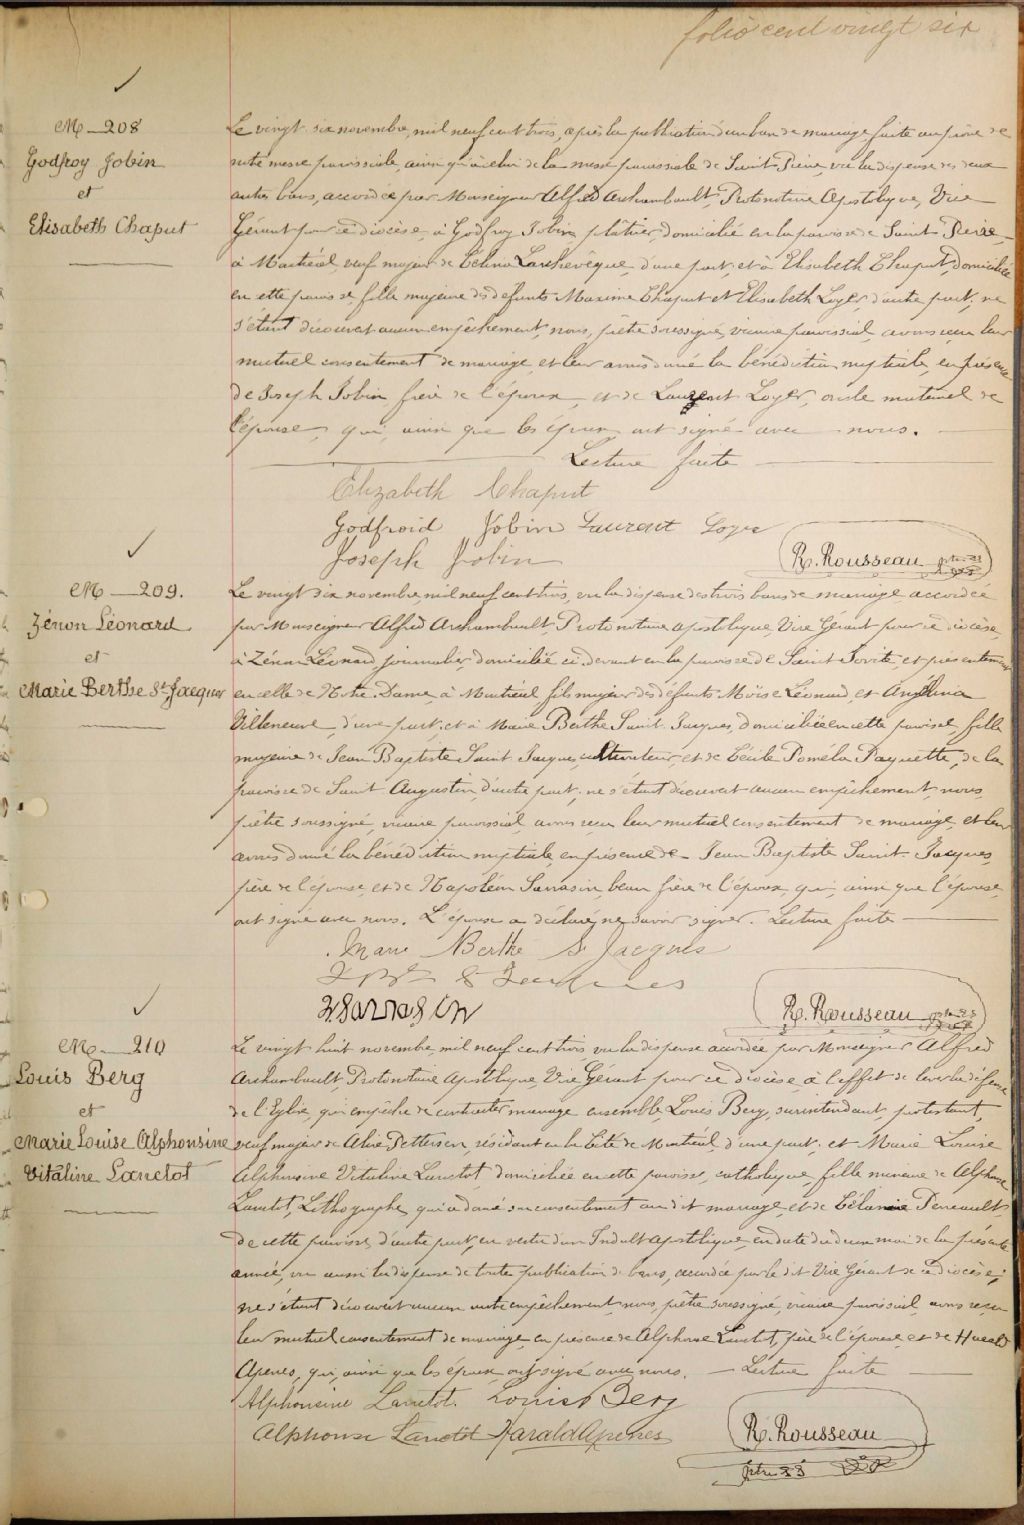 folio cent vingt six
M — 208
Godfroy Jobin
et
Elisabeth Chaput
Le vingt-six novembre, mil neuf cent trois, après la publication d'un ban de mariage faite au prône de
notre messe paroissiale, ainsi qu'à celui de la messe paroissiale de Saint-Pierre, vu la dispense des deux
autres bans, accordée par Monseigneur Alfred Archambault, Protonotaire Apostolique, Vice
Gérant pour ce diocèse, à Godfroy Jobin, plâtrier, domicilié en la paroisse de Saint-Pierre,
à Montréal, veuf majeur de Célina Larchevêque, d'une part, et à Elisabeth Chaput, domiciliée
en cette paroisse, fille majeure des défunts Maxime Chaput et Elisabeth Loyer, d'autre part, ne
s'étant découvert aucun empêchement, nous, prêtre soussigné, vicaire paroissial, avons reçu leur
mutuel consentement de mariage, et leur avons donné la bénédiction nuptiale, en présence
de Joseph Jobin, frère de l'époux, et de Laurent Loyer, oncle maternel de
l'épouse, qui, ainsi que les époux ont signé avec nous.
Lecture faite
Elizabeth Chaput
Godfroid Jobin Laurent Loyer
Joseph Jobin
R. Rousseau ptre
M — 209.
Zénon Léonard
et
Marie Berthe St Jacques
Le vingt six novembre, mil neuf cent trois, vu la dispense des trois bans de mariage accordée
par Monseigneur Alfred Archambault, Protonotaire apostolique, Vice Gérant pour ce diocèse,
à Zénon Léonard, journalier, domicilié ci-devant en la paroisse de Saint Jovite, et présentement
en celle de Notre-Dame, à Montréal, fils majeur des défunts Moïse Léonard, et Angélina
Villeneuve, d'une part, et à Marie Berthe Saint Jacques, domiciliée en cette paroisse, fille
majeure de Jean Baptiste Saint Jacques, cultivateur, et de Cécile Poméla Paquette, de la
paroisse de Saint Augustin, d'autre part, ne s'étant découvert aucun empêchement, nous,
prêtre soussigné, vicaire paroissial avons reçu leur mutuel consentement de mariage, et leur
avons donné la bénédiction nuptiale, en présence de Jean Baptiste Saint-Jacques,
père de l'épouse, et de Napoléon Sarrasin, beau frère de l'époux, qui, ainsi que l'épouse,
ont signé avec nous. L'époux a déclaré ne savoir signer. Lecture faite
Marie Berthe St Jacques
J Bte St Jacques
N Sarrasin
R. Rousseau ptre
M — 210
Louis Berg
et
Marie Louise Alphonsine
Vitaline Lanctot
Le vingt huit novembre mil neuf cent trois, vu la dispense accordée par Monseigneur Alfred
Archambault, Protonotaire Apostolique, Vice Gérant pour ce diocèse, à l'effet de lever la défense
de l'Eglise, qui empêche de contracter mariage ensemble, Louis Berg, surintendant, protestant,
veuf majeur de Petterson, résidant en la Cité de Montréal, d'une part, et Marie Louise
Alphonsine Vitaline Lanctot, domiciliée en cette paroisse, catholique, fille mineure de Alphonse
Lanctot, Lithographe, qui a donné son consentement au dit mariage, et de Célanie Perreault,
de cette paroisse, d'autre part, en vertu d'un Indult apostolique, en date du mois de la présente
année, vu aussi la dispense de toute publication de bans, accordée par le dit Vice Gérant de ce diocèse;
ne s'étant découvert aucun autre empêchement, nous, prêtre soussigné, vicaire paroissial avons reçu
leur mutuel consentement de mariage, en présence de Alphonse Lanctot, père de l'épouse, et de Harald
Apenes, qui, ainsi que les époux, ont signé avec nous. — Lecture faite
Alphonsine Lanctot. Louis Berg
Alphonse Lanctôt Harald Apenes
R. Rousseau
ptre